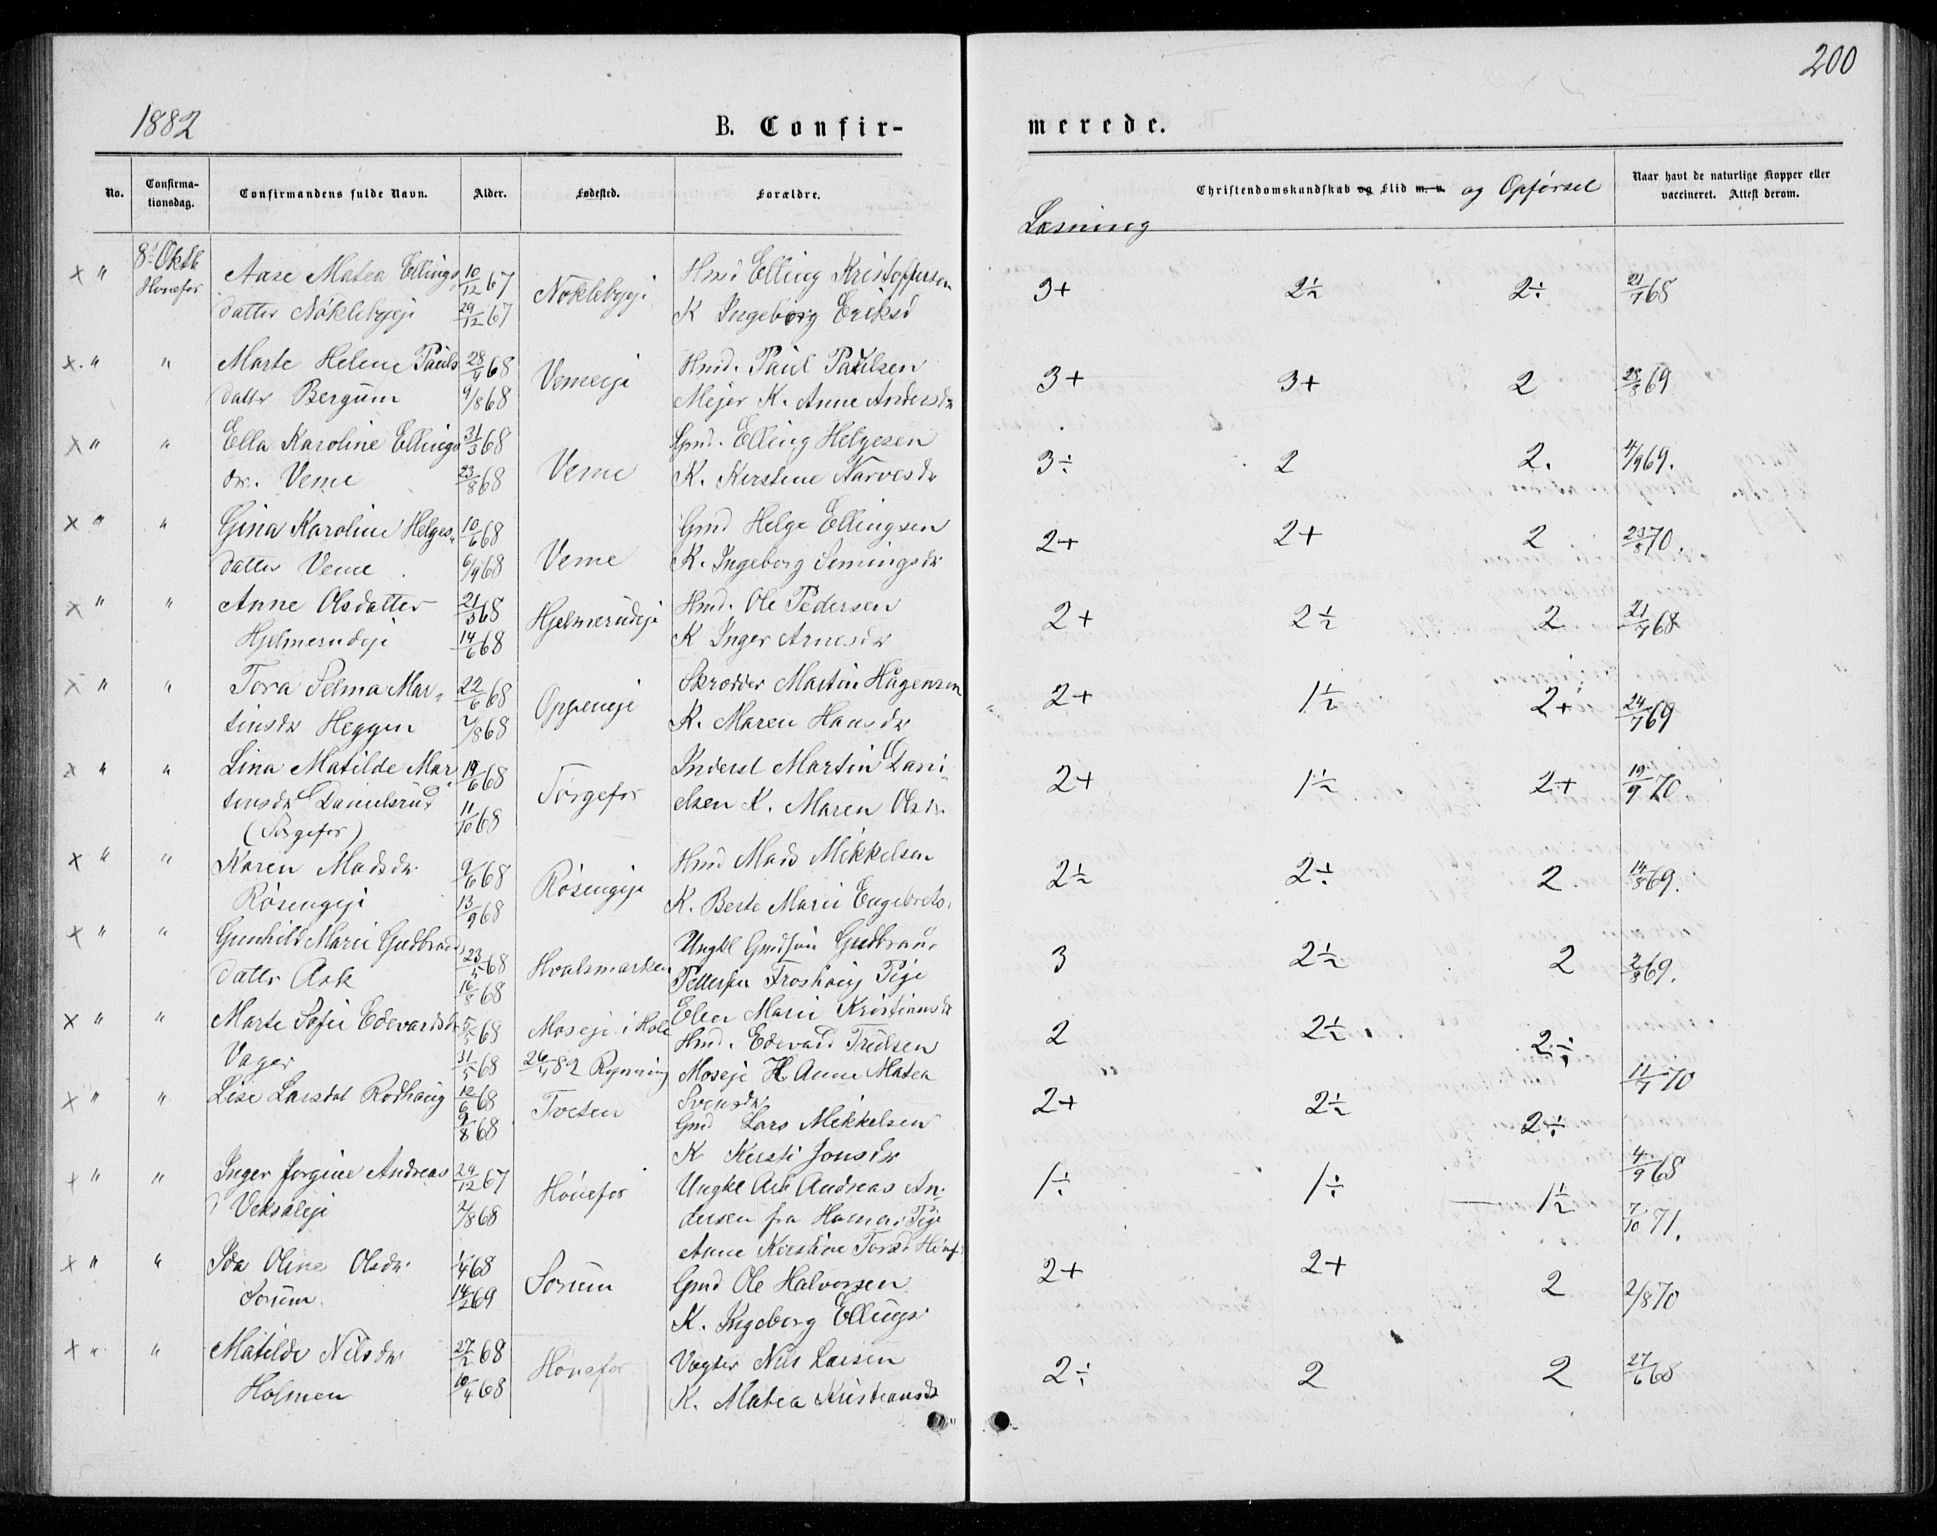 200
1882
B. Confir-
merede.
No.
Confirma-
tionsdag.
Confirmandens fulde Navn.
Alder.
Fødested.
Forældre.
Læsning
Christendomskundskab og Flid m. v. og Opførsel
Naar havt de naturlige Kopper eller
vaccineret. Attest derom.
x " 8' Oktb Aase Matea Ellings 10/12 67 Nøklebyeje Hmd Elling Kristoffersen 3+ 2½ 2÷ 21/7 68
Hønefos datter Nøklebyeje 29/12 67 K Ingeborg Eriksd
x. " " Marte Helene Pauls 28/4 68 Vemeeje Hmd. Paul Paulsen 3+ 3+ 2 28/8 69
datter Bergum 9/8 68 Mejer K. Anne Andersdr
x " " Ella Karoline Ellings 31/3 68 Veme Gmd. Elling Helgesen 3÷ 2 2. 4/9 69.
dr. Veme 23/8 68 K. Kirstine Narvesdr
x " " Gina Karoline Helges- 10/6 68 Veme Gmd Helge Ellingsen 2+ 2+ 2 23/8 70.
datter Veme 6/9 68 K. Ingeborg Semingsdr
x " " Anne Olsdatter 21/3 68 Hjelmerudeje Hmd. Ole Pedersen 2+ 2½ 2 21/7 68
Hjelmerudeje 14/6 68 K Inger Arnesdr
x " " Tora Selma Mar- 22/6 68 Oppeneje Skrædder Martin Hagensen 2+ 1½ 2+ 24/7 69
tinsdr Heggen 2/8 68 K. Maren Hansdr
x " " Lina Matilde Mar- 19/6 68 Førgefos Inderst Martin Dani- 2+ 1½ 2+ 19/9 70
tinsdr Danielsrud 11/10 68 elsen K. Maren Olsdr.
(Førgefos)
x " " Karen Madsdr 9/6 68 Røsengeje Hmd Mads Mikkelsen 2½ 2÷ 2. 14/8 69.
Røsengeje 13/9 68 K. Berte Marie Engebrets.
x " " Gunhild Marie Gudbrands 23/5 68 Hvalsmarken Ungkl Gmdsøn Gudbrand 3 2½ 2 2/8 69.
datter Ask 16/8 68 Pettersen Froshaug Pige
Elen Marie Kristiansdr
x " " Marte Sofie Edevardsdr 5/5 68 Moseje i Hole Hmd. Edevard Trulsen 2 2½ 2÷ 11/7 70
Vager 31/5 68 26/4 82 Rynning Moseje K Anne Matea
Svensdr.
x " " Lise Larsdat Rødhaug 12/6 68 Tveten Gmd Lars Mikkelsen 2+ 2½ 2÷ 4/9 68
9/8 68 K Kersti Jonsdr
x " " Inger Jørgine Andreas 24/12 67 Hønefos Ungkl Arb Andreas An- 1÷ 1÷ 1½ 7/10 71.
d Veksaleje 2/8 68 dersen fra Hamar Pige
Anne Kirstine Torsd Hønef.
x " " Ida Oline Olsdr. 1/4 68 Sørum Gmd Ole Halvorsen 2+ 2+ 2 2/8 70
Sørum. 14/2 69 K. Ingeborg Ellings.
x " " Matilde Nilsdr. 27/2 68 Hønefos Vægter Nils Larsen 2÷ 2 2 27/6 68
Holmen 10/4 68 K. Matea Kristiansdr